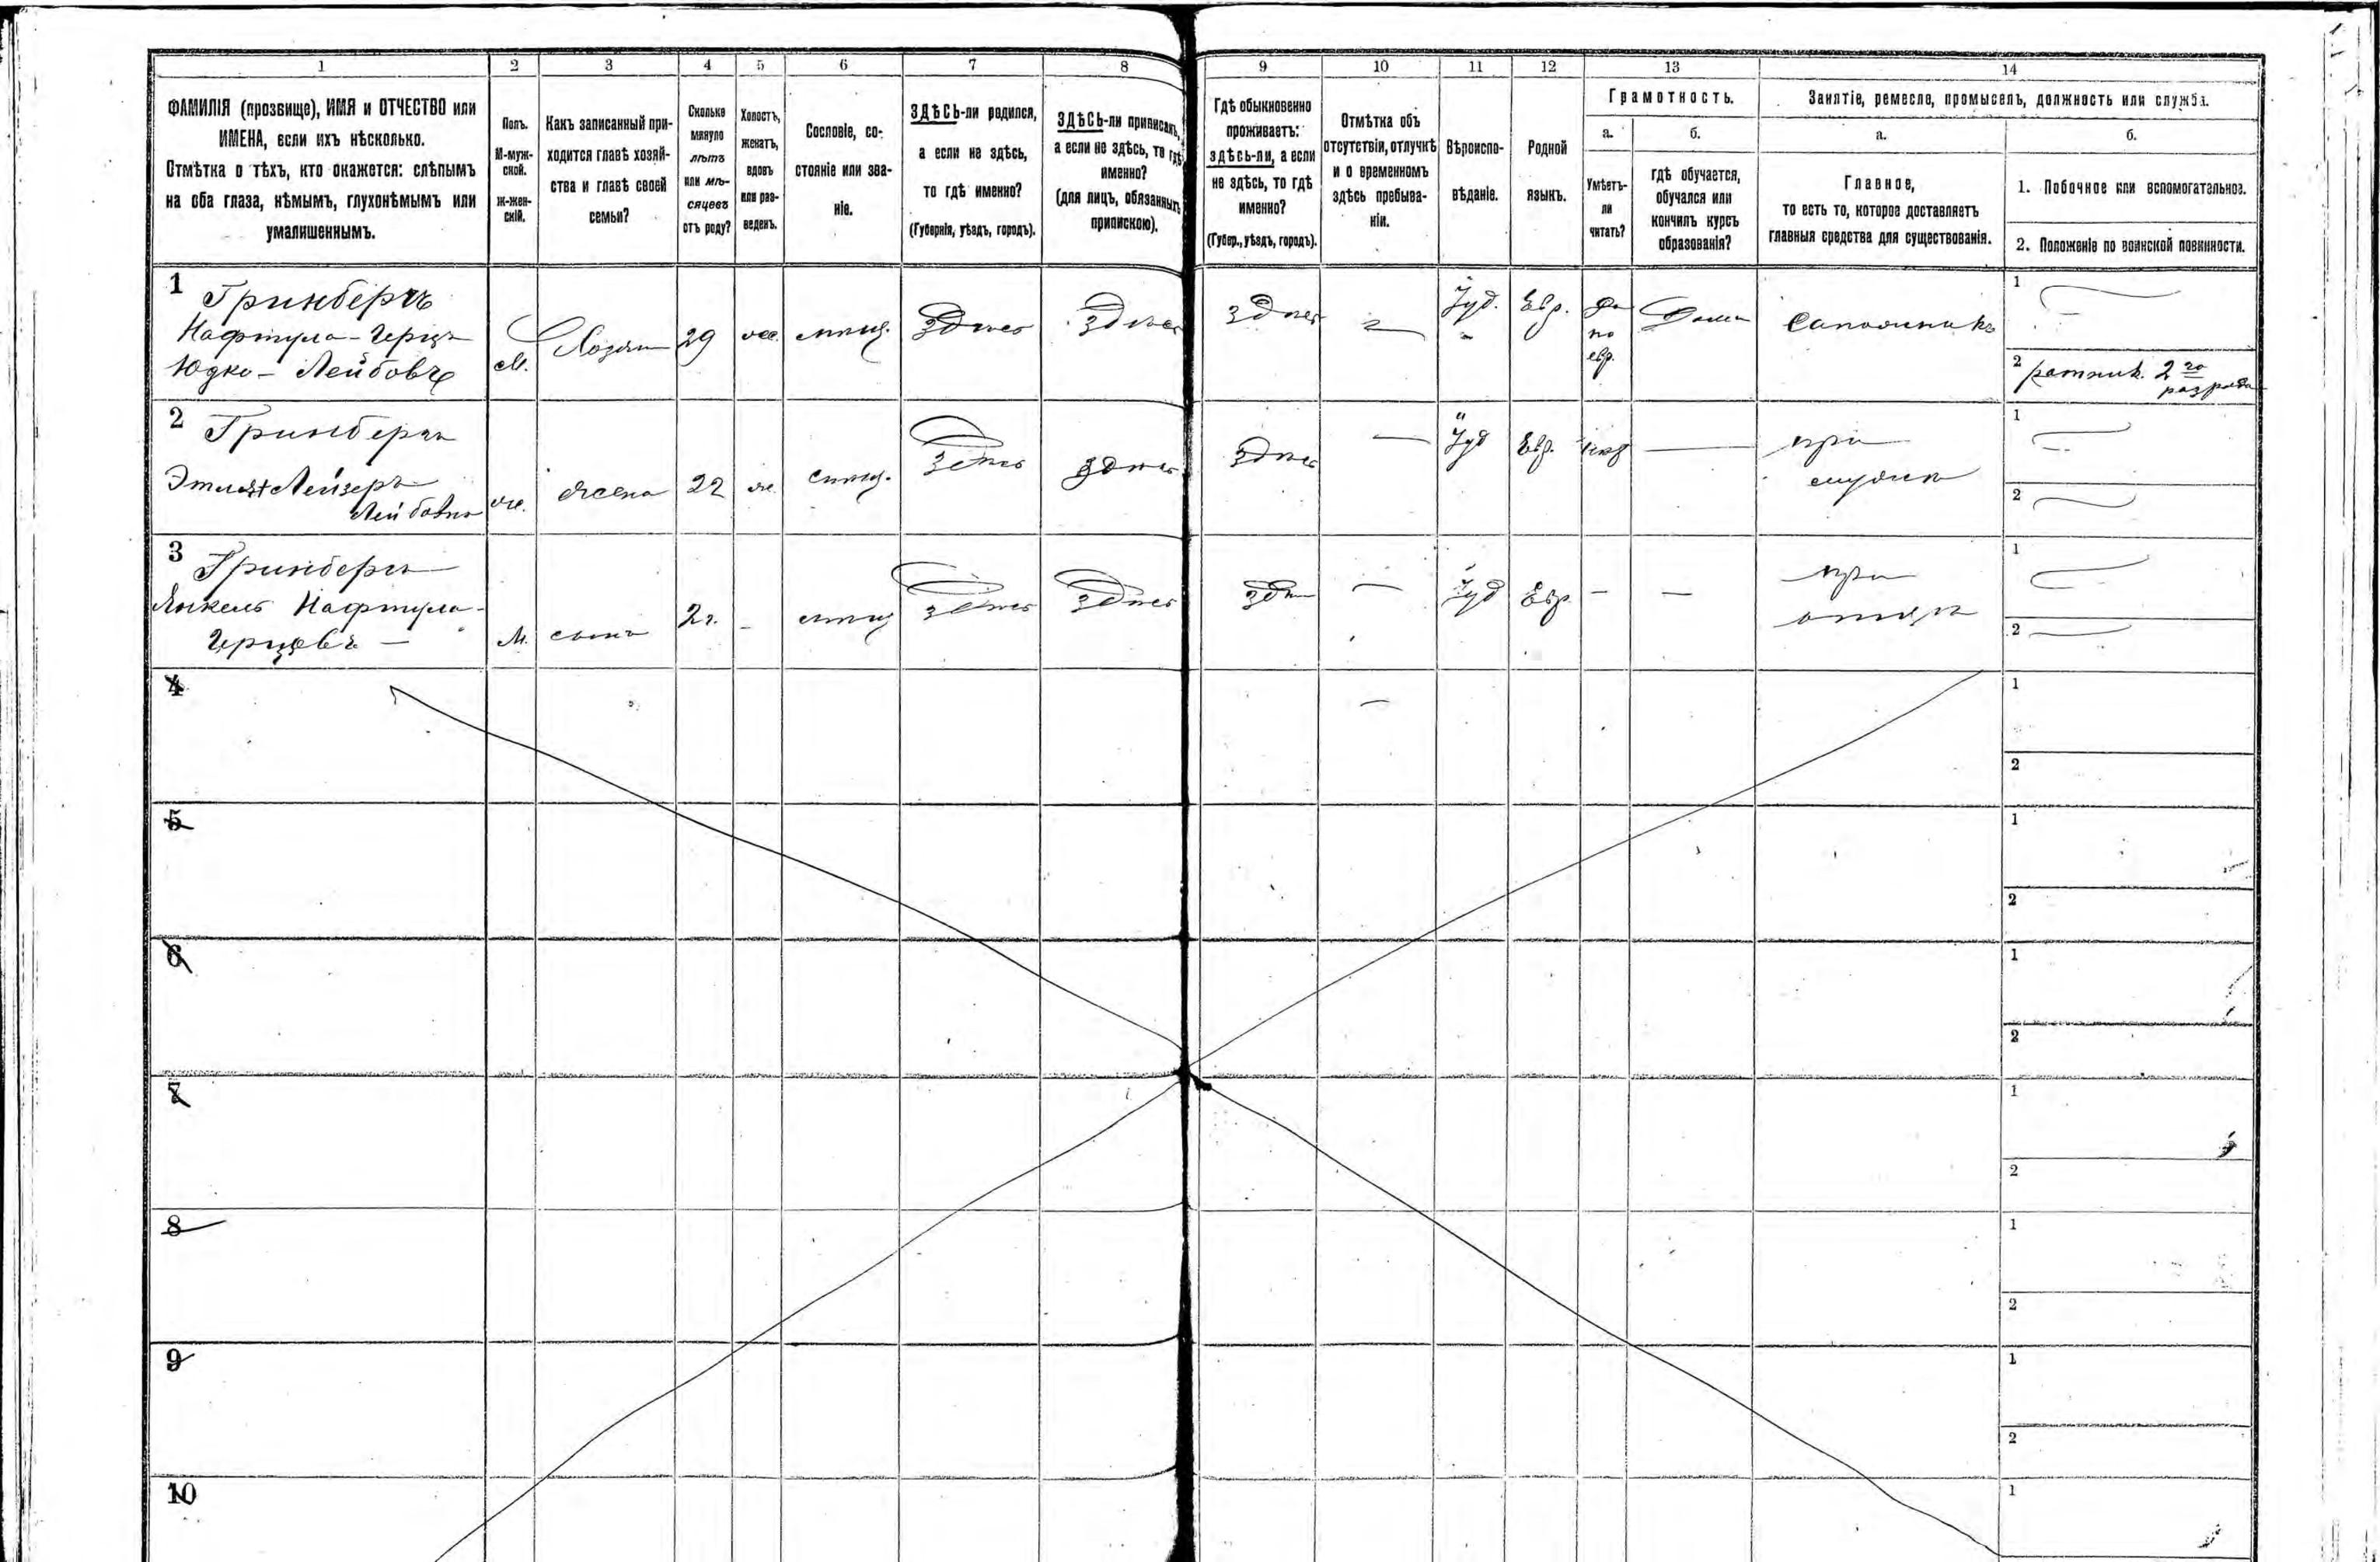 1
2
3
4
5
6
7
8
9
10
11
12
13
14
ФАМИЛІЯ (прозвище), ИМЯ и ОТЧЕСТВО или
ИМЕНА, если ихъ нѣсколько.
Отмѣтка о тѣхъ, кто окажется: слѣпымъ
на оба глаза, нѣмымъ, глухонѣмымъ или
умалишеннымъ.
Полъ.
М-муж-
ской.
Ж-жен-
скій.
Какъ записанный при-
ходится главѣ хозяй-
ства и главѣ своей
семьи?
Сколько
минуло
лѣтъ
или мѣ-
сяцевъ
отъ роду?
Холостъ,
женатъ,
вдовъ
или раз-
веденъ.
Сословіе, со-
стояніе или зва-
ніе.
ЗДѢСЬ-ли родился,
а если не здѣсь,
то гдѣ именно?
(Губернія, уѣздъ, городъ).
ЗДѢСЬ-ли приписанъ,
а если не здѣсь, то гдѣ
именно?
(для лицъ, обязанныхъ
припискою).
Гдѣ обыкновенно
проживаетъ:
здѣсь-ли, а если
не здѣсь, то гдѣ
именно?
(Губер., уѣздъ, городъ).
Отмѣтка объ
отсутствіи, отлучкѣ
и о временномъ
здѣсь пребыва-
ніи.
Вѣроиспо-
вѣданіе.
Родной
языкъ.
Грамотность.
а.
Умѣетъ-
ли
читать?
б.
гдѣ обучается,
обучался или
кончилъ курсъ
образованія?
Занятіе, ремесло, промыселъ, должность или служба.
а.
Главное,
то есть то, которое доставляетъ
главныя средства для существованія.
б.
1. Побочное или вспомогательное.
2. Положеніе по воинской повинности.
1
Гринбергъ
Нафтула-Герцъ
Юдко-Лейбовъ
М.
Хозяин
29
же.
мѣщ.
Здѣсь
Здѣсь
здѣсь
Іуд.
Евр.
да
по
евр.
Дома
Сапожникъ
1
2 ратник. 2го
разряда
2
Гринбергъ
Лейзеръ
Лейбовна
же.
жена
22
же.
мѣщ.
Здѣсь
здѣсь
здѣсь
—
Іуд
Евр.
—
при
мужѣ
1
2
3
Гринбергъ
Янкель Нафтула-
Герцовъ —
М.
сынъ
2г.
-
мѣщ
здѣсь
здѣсь
здѣ
—
Іуд
Евр.
—
—
при
отцѣ
1
2
4
—
1
2
5
1
2
6
1
2
7
1
2
8
1
2
9
1
2
10
1